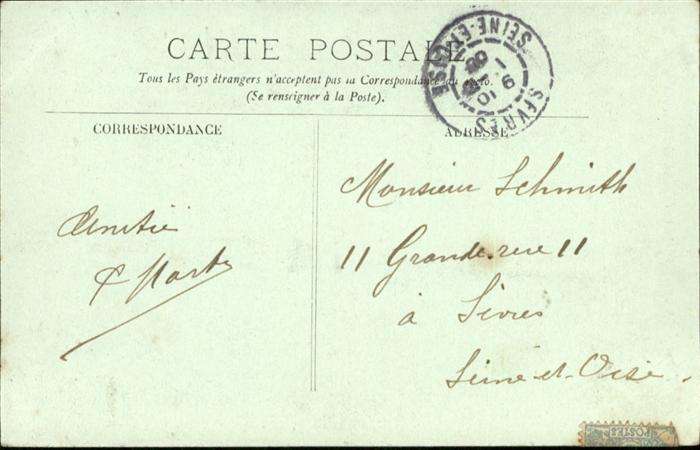 CARTE POSTALE
Tous les Pays étrangers n'acceptent pas la Correspondance au recto.
(Se renseigner à la Poste).
CORRESPONDANCE
ADRESSE
Amitié
Monsieur Schmith
11 Grande rue 11
à Sèvres
Seine-et-Oise.
SÈVRES
SEINE-ET-OISE
POSTES